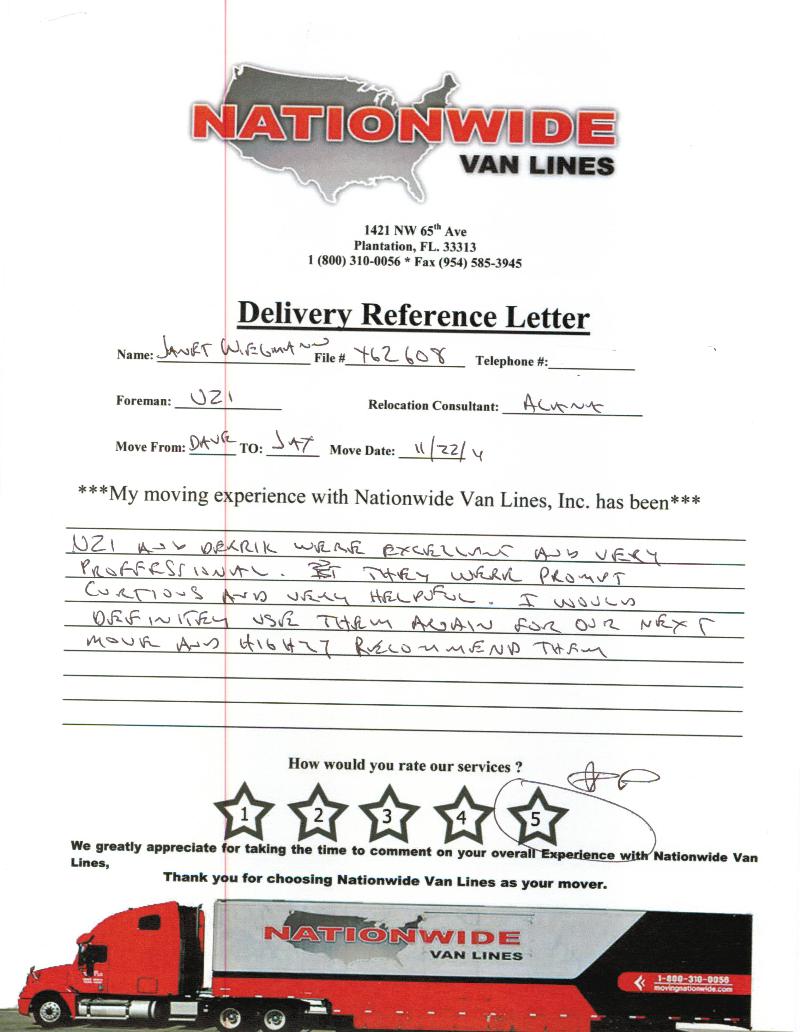 NATIONWIDE
VAN LINES
1421 NW 65th Ave
Plantation, FL. 33313
1 (800) 310-0056 * Fax (954) 585-3945
Delivery Reference Letter
Name: JANET WIEGMANN File # Y62608 Telephone #:
Foreman: UZI Relocation Consultant: ALANA
Move From: DAVE TO: Move Date: 11/22/
***My moving experience with Nationwide Van Lines, Inc. has been***
UZI AND DERRIK WERE EXCELLANT AND VERY
PROFFESSIONAL. THEY WERE PROMPT
CURTIOUS AND VERY HELPFUL. I WOULD
DEFINITEY USE THEM AGAIN FOR OUR NEXT
MOVE AND HIGHLY RECOMMEND THEM
How would you rate our services ?
1 2 3 4 5
We greatly appreciate for taking the time to comment on your overall Experience with Nationwide Van
Lines,
Thank you for choosing Nationwide Van Lines as your mover.
NATIONWIDE
VAN LINES
1-800-310-0056
movingnationwide.com